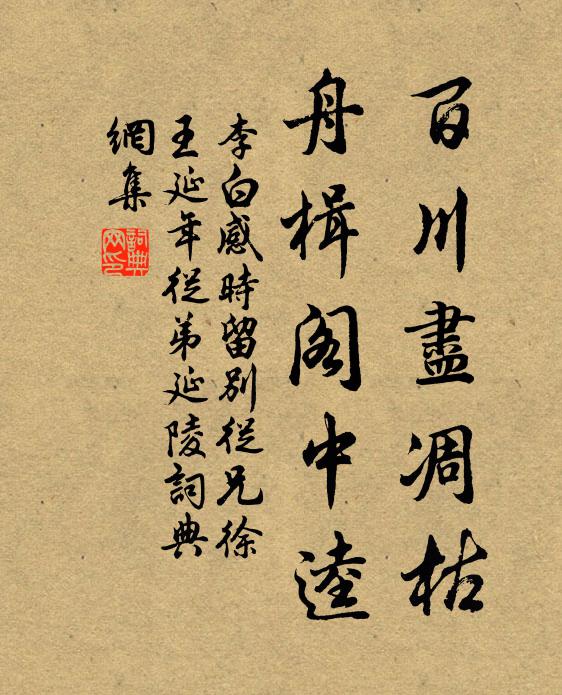 百川盡凋枯
舟楫阁中逵
李白感時留别從兄徐
王延年從弟延陵詞典
網集
詞典
网印